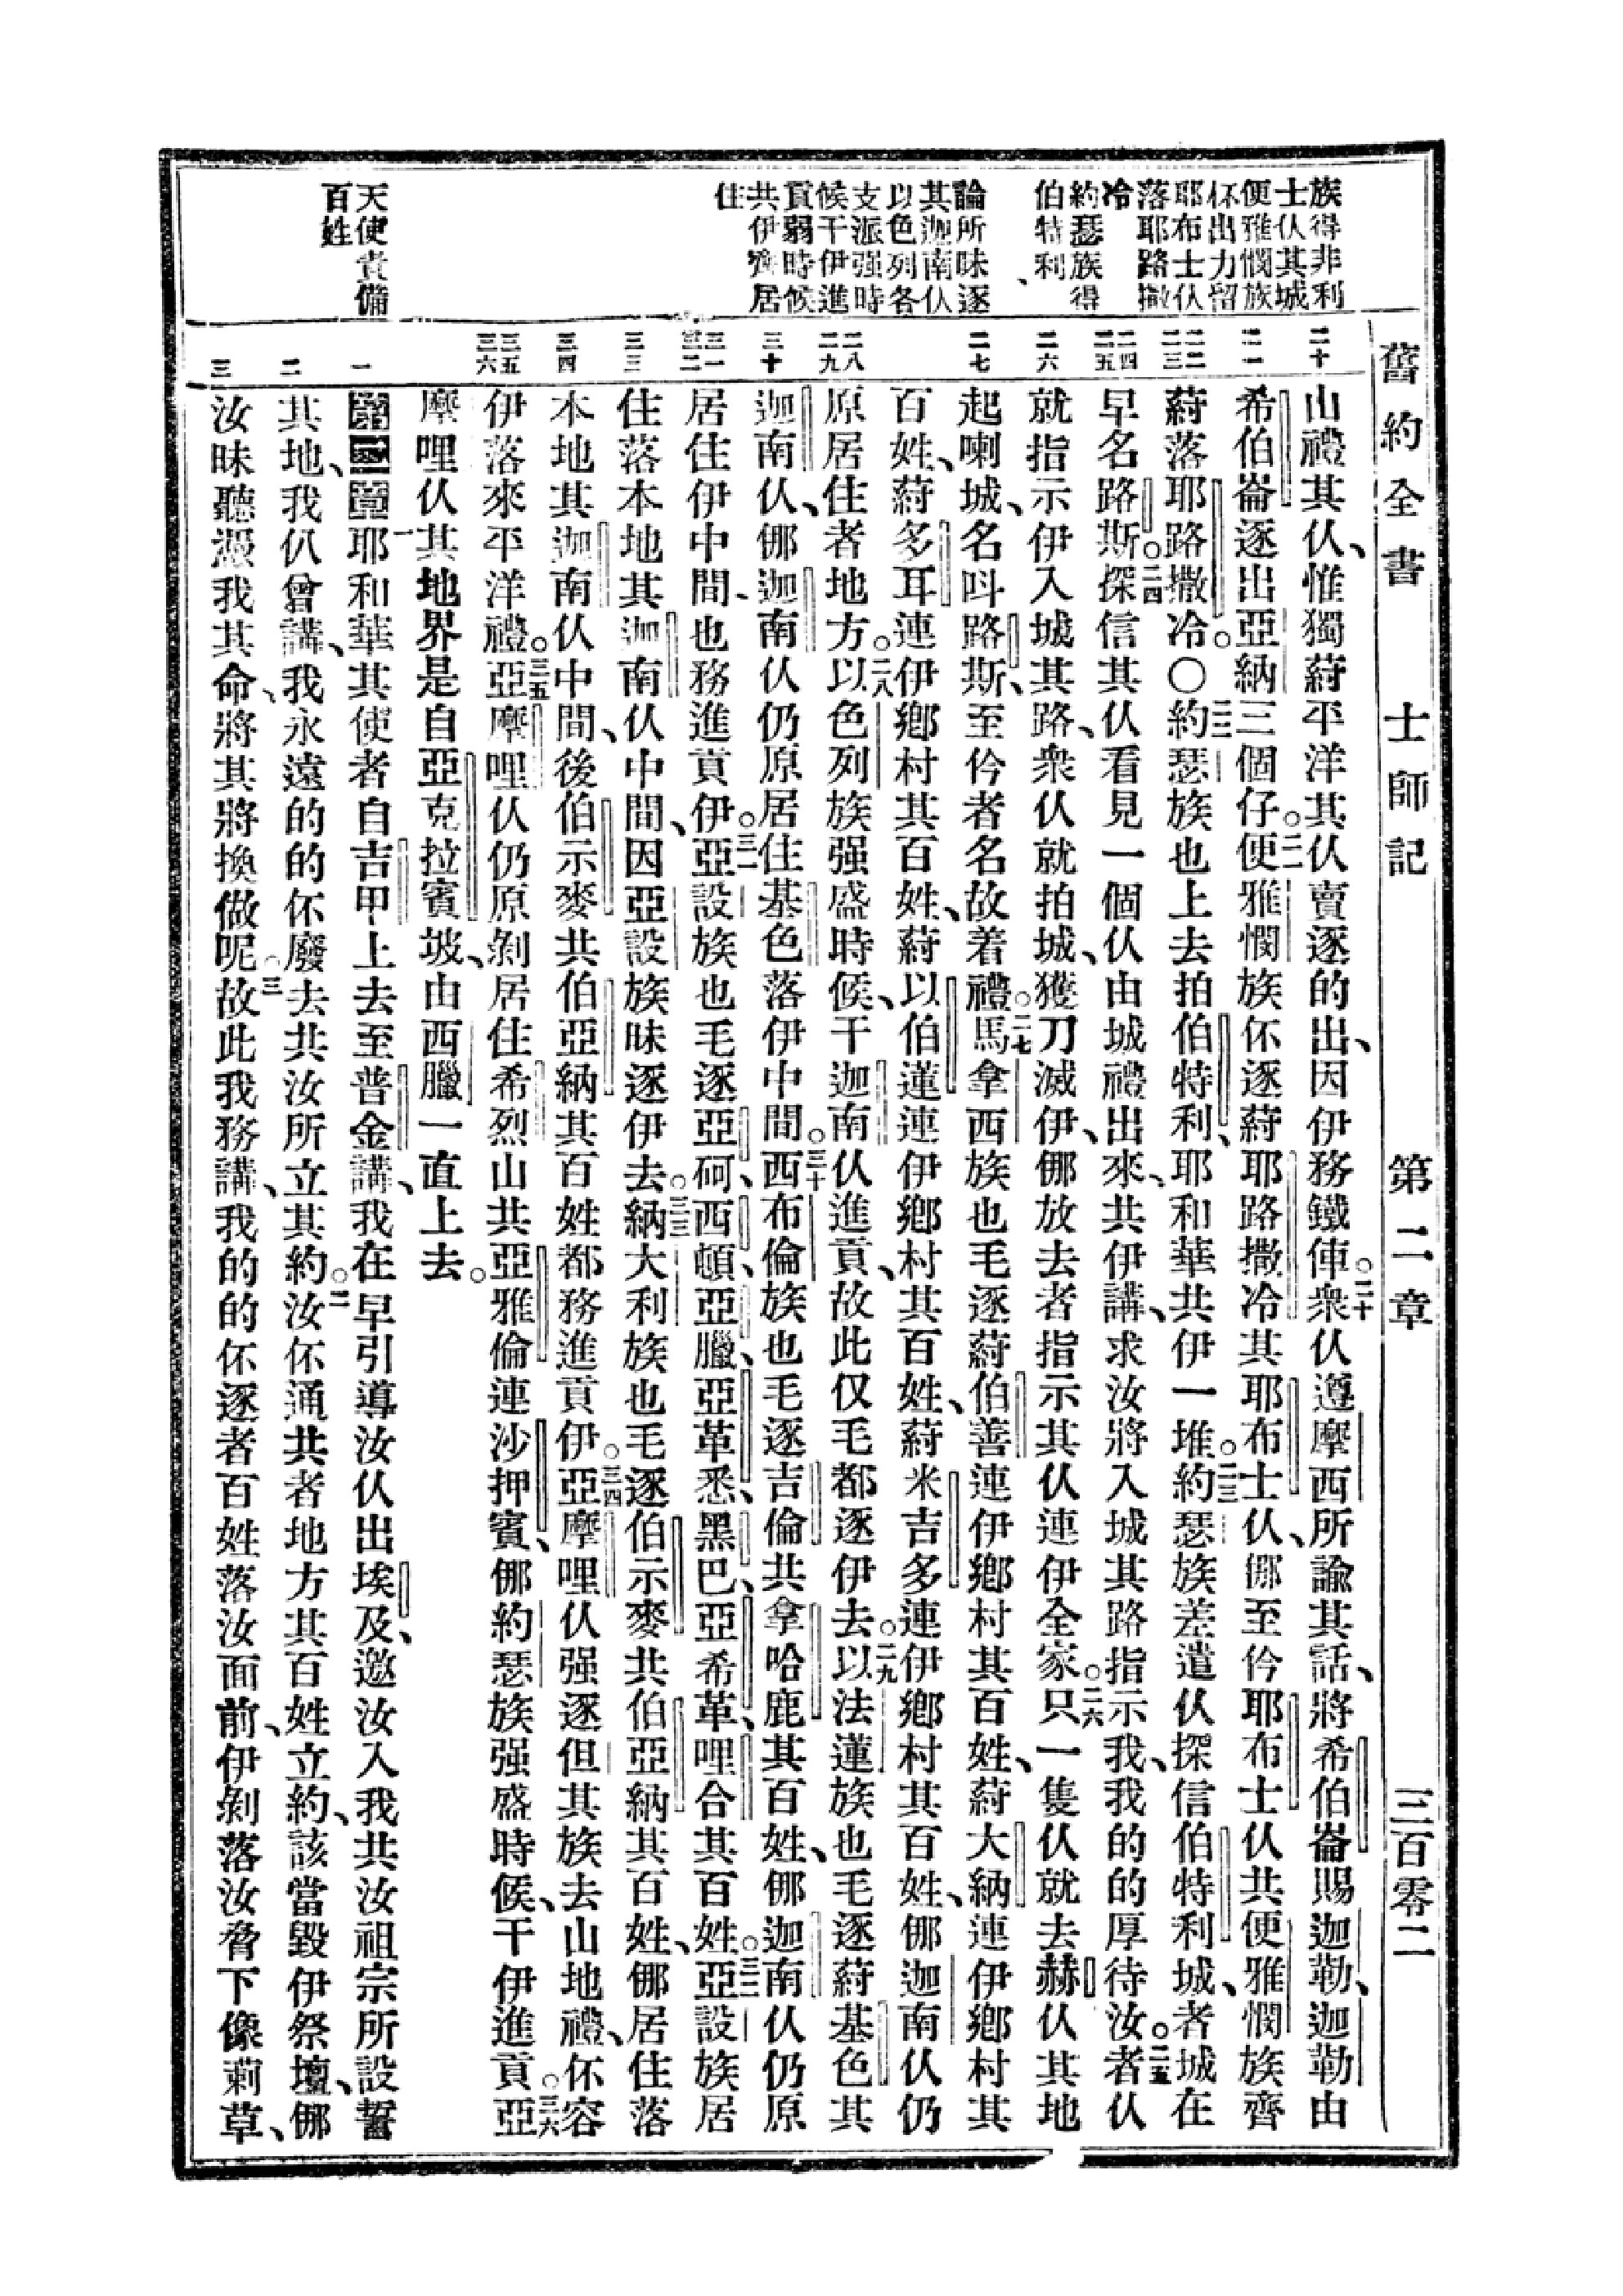 舊約全書 士師記 第二章 三百零二
族得非利
士仈其城
便雅憫族
伓出力留
耶布士仈
落耶路撒
冷
約瑟族得
伯特利、
論所昧逐
其迦南仈
以色列各
支派强時
候干伊進
貢弱時候
共伊齊居
住
天使責備
百姓
二十
二一
二二
二三
二四
二五
二六
二七
二八
二九
三十
三一
三二
三三
三四
三五
三六
一
二
三
山禮其仈、惟獨蒔平洋其仈賣逐的出、因伊務鐵俥。二十衆仈遵摩西所諭其話、將希伯崙賜迦勒、迦勒由
希伯崙逐出亞納三個仔。二一便雅憫族伓逐蒔耶路撒冷其耶布士仈、㑚至仱耶布士仈共便雅憫族齊
蒔落耶路撒冷。〇二二約瑟族也上去拍伯特利、耶和華共伊一堆。二三約瑟族差遣仈探信伯特利城、者城在
早名路斯。二四探信其仈看見一個仈由城禮出來、共伊講、求汝將入城其路指示我、我的的厚待汝。二五者仈
就指示伊入城其路、衆仈就拍城、獲刀滅伊、㑚放去者指示其仈連伊全家。二六只一隻仈就去赫仈其地
起喇城、名呌路斯、至仱者名故着禮。二七馬拿西族也毛逐蒔伯善連伊鄉村其百姓、蒔大納連伊鄉村其
百姓、蒔多耳連伊鄉村其百姓、蒔以伯蓮連伊鄉村其百姓、蒔米吉多連伊鄉村其百姓、㑚迦南仈仍
原居住者地方。二八以色列族强盛時候、干迦南仈進貢、故此仅毛都逐伊去。二九以法蓮族也毛逐蒔基色其
迦南仈、㑚迦南仈仍原居住基色落伊中間。三十西布倫族也毛逐吉倫共拿哈鹿其百姓、㑚迦南仈仍原
居住伊中間、也務進貢伊。三一亞設族也毛逐亞砢、西頓、亞臘、亞革悉、黑巴、亞希革、哩合其百姓。三二亞設族居
住落本地其迦南仈中間、因亞設族昧逐伊去。三三納大利族也毛逐伯示麥共伯亞納其百姓、㑚居住落
本地其迦南仈中間、後伯示麥共伯亞納其百姓都務進貢伊。三四亞摩哩仈强逐但其族去山地禮、伓容
伊落來平洋禮。三五亞摩哩仈仍原剝居住希烈山共亞雅倫連沙押賓、㑚約瑟族强盛時候、干伊進貢。三六亞
摩哩仈其地界是自亞克拉賓坡、由西臘一直上去。
第二章一耶和華其使者自吉甲上去至普金講、我在早引導汝仈出埃及、邀汝入我共汝祖宗所設誓
其地、我仈曾講、我永遠的的伓廢去共汝所立其約。二汝伓通共者地方其百姓立約、該當毀伊祭壇、㑚
汝昧聽憑我其命、將其將換做呢。三故此我務講、我的的伓逐者百姓落汝面前、伊剝落汝脅下像莿草、